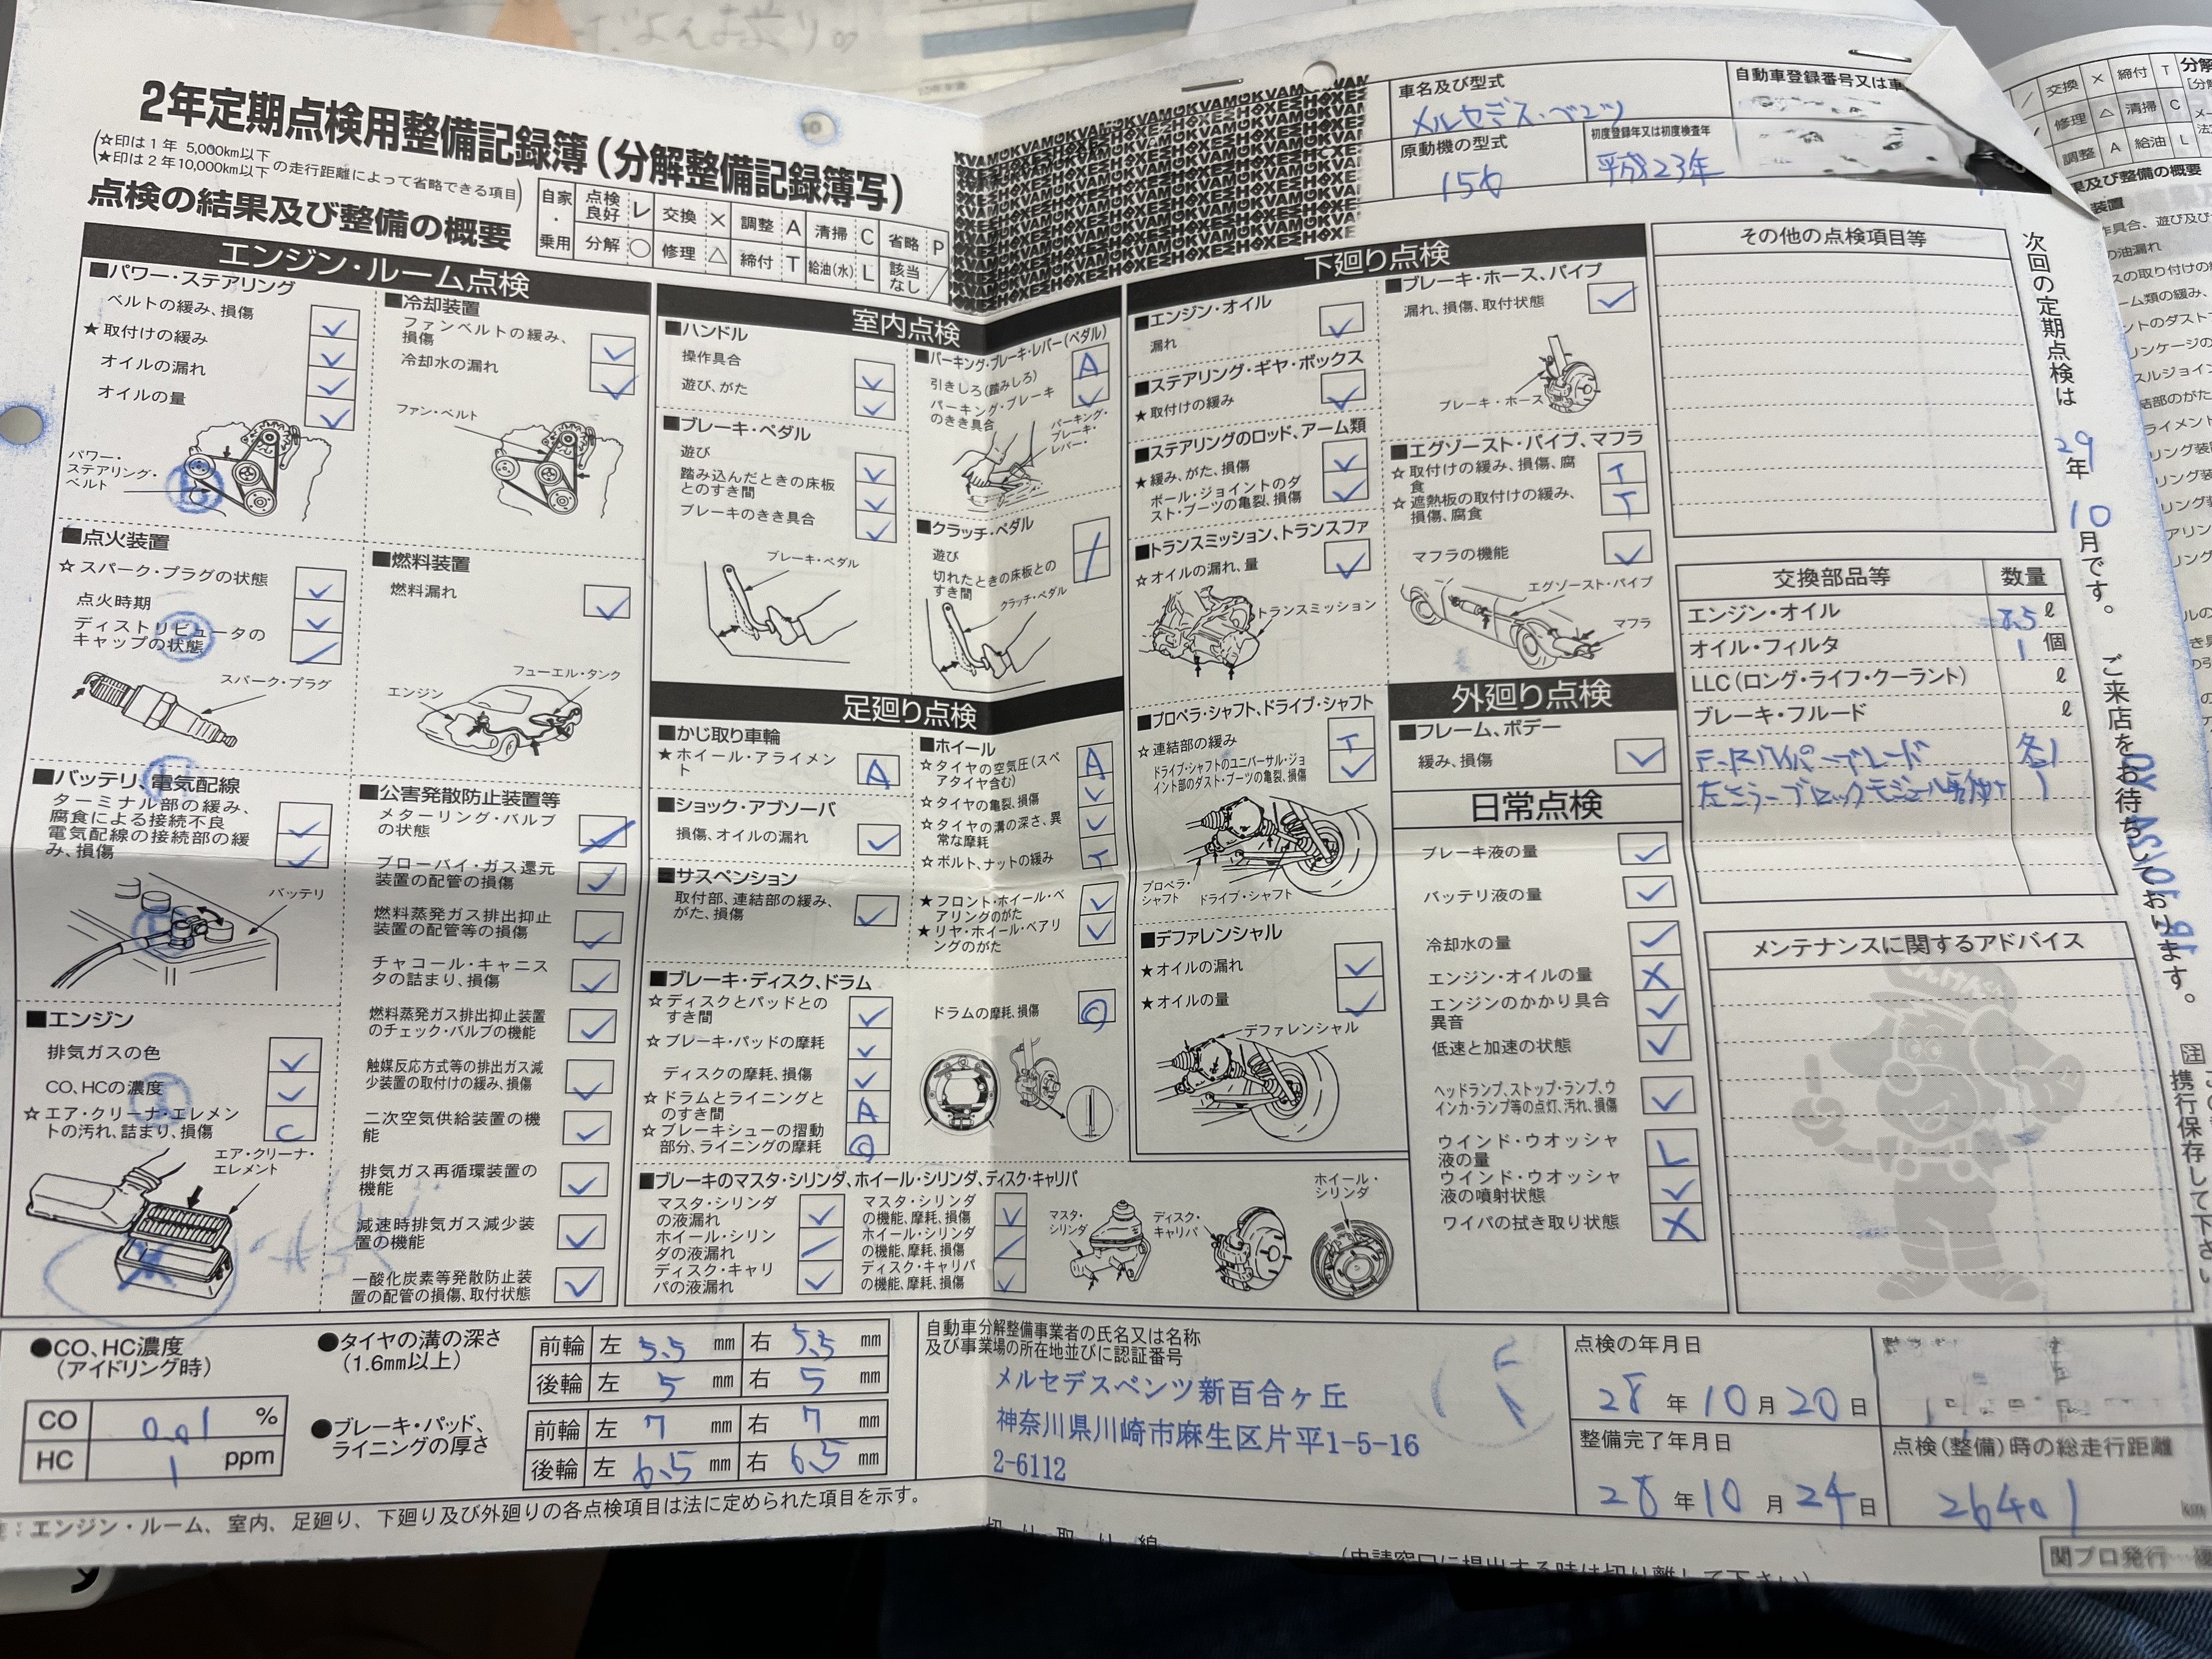 2年定期点検用整備記録簿(分解整備記録簿写)
(☆印は1年 5,000km以下
★印は2年10,000km以下 の走行距離によって省略できる項目)
点検の結果及び整備の概要
自家・乗用
点検良好 レ 交換 × 調整 A 清掃 C 省略 P
分解 ○ 修理 △ 締付 T 給油(水) L 該当なし /
車名及び型式
メルセデス・ベンツ
自動車登録番号又は車
原動機の型式
156
初度登録年又は初度検査年
平成23年
エンジン・ルーム点検
■パワー・ステアリング
ベルトの緩み、損傷
★取付けの緩み
オイルの漏れ
オイルの量
パワー・
ステアリング・
ベルト
■冷却装置
ファンベルトの緩み、
損傷
冷却水の漏れ
ファン・ベルト
■点火装置
☆スパーク・プラグの状態
点火時期
ディストリビュータの
キャップの状態
スパーク・プラグ
■燃料装置
燃料漏れ
フューエル・タンク
エンジン
■バッテリ、電気配線
ターミナル部の緩み、
腐食による接続不良
電気配線の接続部の緩
み、損傷
バッテリ
■公害発散防止装置等
メターリング・バルブ
の状態
ブローバイ・ガス還元
装置の配管の損傷
燃料蒸発ガス排出抑止
装置の配管等の損傷
チャコール・キャニス
タの詰まり、損傷
燃料蒸発ガス排出抑止装置
のチェック・バルブの機能
触媒反応方式等の排出ガス減
少装置の取付けの緩み、損傷
二次空気供給装置の機
能
排気ガス再循環装置の
機能
減速時排気ガス減少装
置の機能
一酸化炭素等発散防止装
置の配管の損傷、取付状態
■エンジン
排気ガスの色
CO、HCの濃度
☆エア・クリーナ・エレメン
トの汚れ、詰まり、損傷 C
エア・クリーナ・
エレメント
室内点検
■ハンドル
操作具合
遊び、がた
■ブレーキ・ペダル
遊び
踏み込んだときの床板
とのすき間
ブレーキのきき具合
ブレーキ・ペダル
■パーキング・ブレーキ・レバー(ペダル)
引きしろ(踏みしろ) A
パーキング・ブレーキ
のきき具合
パーキング・
ブレーキ・
レバー
■クラッチ・ペダル
遊び
切れたときの床板との
すき間
クラッチ・ペダル
足廻り点検
■かじ取り車輪
★ホイール・アライメン
ト A
■ショック・アブソーバ
損傷、オイルの漏れ
■サスペンション
取付部、連結部の緩み、
がた、損傷
■ホイール
☆タイヤの空気圧(スペ
アタイヤ含む) A
☆タイヤの亀裂、損傷
☆タイヤの溝の深さ、異
常な摩耗
☆ボルト、ナットの緩み T
★フロント・ホイール・ベ
アリングのがた
★リヤ・ホイール・ベアリ
ングのがた
■ブレーキ・ディスク、ドラム
☆ディスクとパッドとの
すき間
☆ブレーキ・パッドの摩耗
ディスクの摩耗、損傷
☆ドラムとライニングと
のすき間 A
☆ブレーキシューの摺動
部分、ライニングの摩耗
ドラムの摩耗、損傷
■ブレーキのマスタ・シリンダ、ホイール・シリンダ、ディスク・キャリパ
マスタ・シリンダ
の液漏れ
ホイール・シリン
ダの液漏れ
ディスク・キャリ
パの液漏れ
マスタ・シリンダ
の機能、摩耗、損傷
ホイール・シリンダ
の機能、摩耗、損傷
ディスク・キャリパ
の機能、摩耗、損傷
マスタ・
シリンダ
ディスク・
キャリパ
ホイール・
シリンダ
下廻り点検
■エンジン・オイル
漏れ
■ステアリング・ギヤ・ボックス
★取付けの緩み
■ステアリングのロッド、アーム類
★緩み、がた、損傷
ボール・ジョイントのダ
スト・ブーツの亀裂、損傷
■トランスミッション、トランスファ
☆オイルの漏れ、量
トランスミッション
■プロペラ・シャフト、ドライブ・シャフト
☆連結部の緩み T
ドライブ・シャフトのユニバーサル・ジョ
イント部のダスト・ブーツの亀裂、損傷
プロペラ・
シャフト
ドライブ・シャフト
■デファレンシャル
★オイルの漏れ
★オイルの量
デファレンシャル
■ブレーキ・ホース、パイプ
漏れ、損傷、取付状態
ブレーキ・ホース
■エグゾースト・パイプ、マフラ
☆取付けの緩み、損傷、腐
食 T
☆遮熱板の取付けの緩み、
損傷、腐食 T
マフラの機能
エグゾースト・パイプ
マフラ
外廻り点検
■フレーム、ボデー
緩み、損傷
日常点検
ブレーキ液の量
バッテリ液の量
冷却水の量
エンジン・オイルの量 ×
エンジンのかかり具合
異音
低速と加速の状態
ヘッドランプ、ストップ・ランプ、ウ
インカ・ランプ等の点灯、汚れ、損傷
ウインド・ウオッシャ
液の量 L
ウインド・ウオッシャ
液の噴射状態
ワイパの拭き取り状態 ×
その他の点検項目等
交換部品等 数量
エンジン・オイル 8.5 ℓ
オイル・フィルタ 1 個
LLC(ロング・ライフ・クーラント) ℓ
ブレーキ・フルード ℓ
F・Rワイパーブレード 各1
メンテナンスに関するアドバイス
次回の定期点検は29年10月です。ご来店をお待ちしております。
●CO、HC濃度
(アイドリング時)
CO 0.01 %
HC 1 ppm
●タイヤの溝の深さ
(1.6mm以上)
前輪 左 5.5 mm 右 5.5 mm
後輪 左 5 mm 右 5 mm
●ブレーキ・パッド、
ライニングの厚さ
前輪 左 7 mm 右 7 mm
後輪 左 6.5 mm 右 6.5 mm
自動車分解整備事業者の氏名又は名称
及び事業場の所在地並びに認証番号
メルセデスベンツ新百合ヶ丘
神奈川県川崎市麻生区片平1-5-16
2-6112
点検の年月日
28年10月20日
整備完了年月日
28年10月24日
点検(整備)時の総走行距離
26401 km
エンジン・ルーム、室内、足廻り、下廻り及び外廻りの各点検項目は法に定められた項目を示す。
切り取り線
(申請窓口に提出する時は切り離して下さい)
関プロ発行